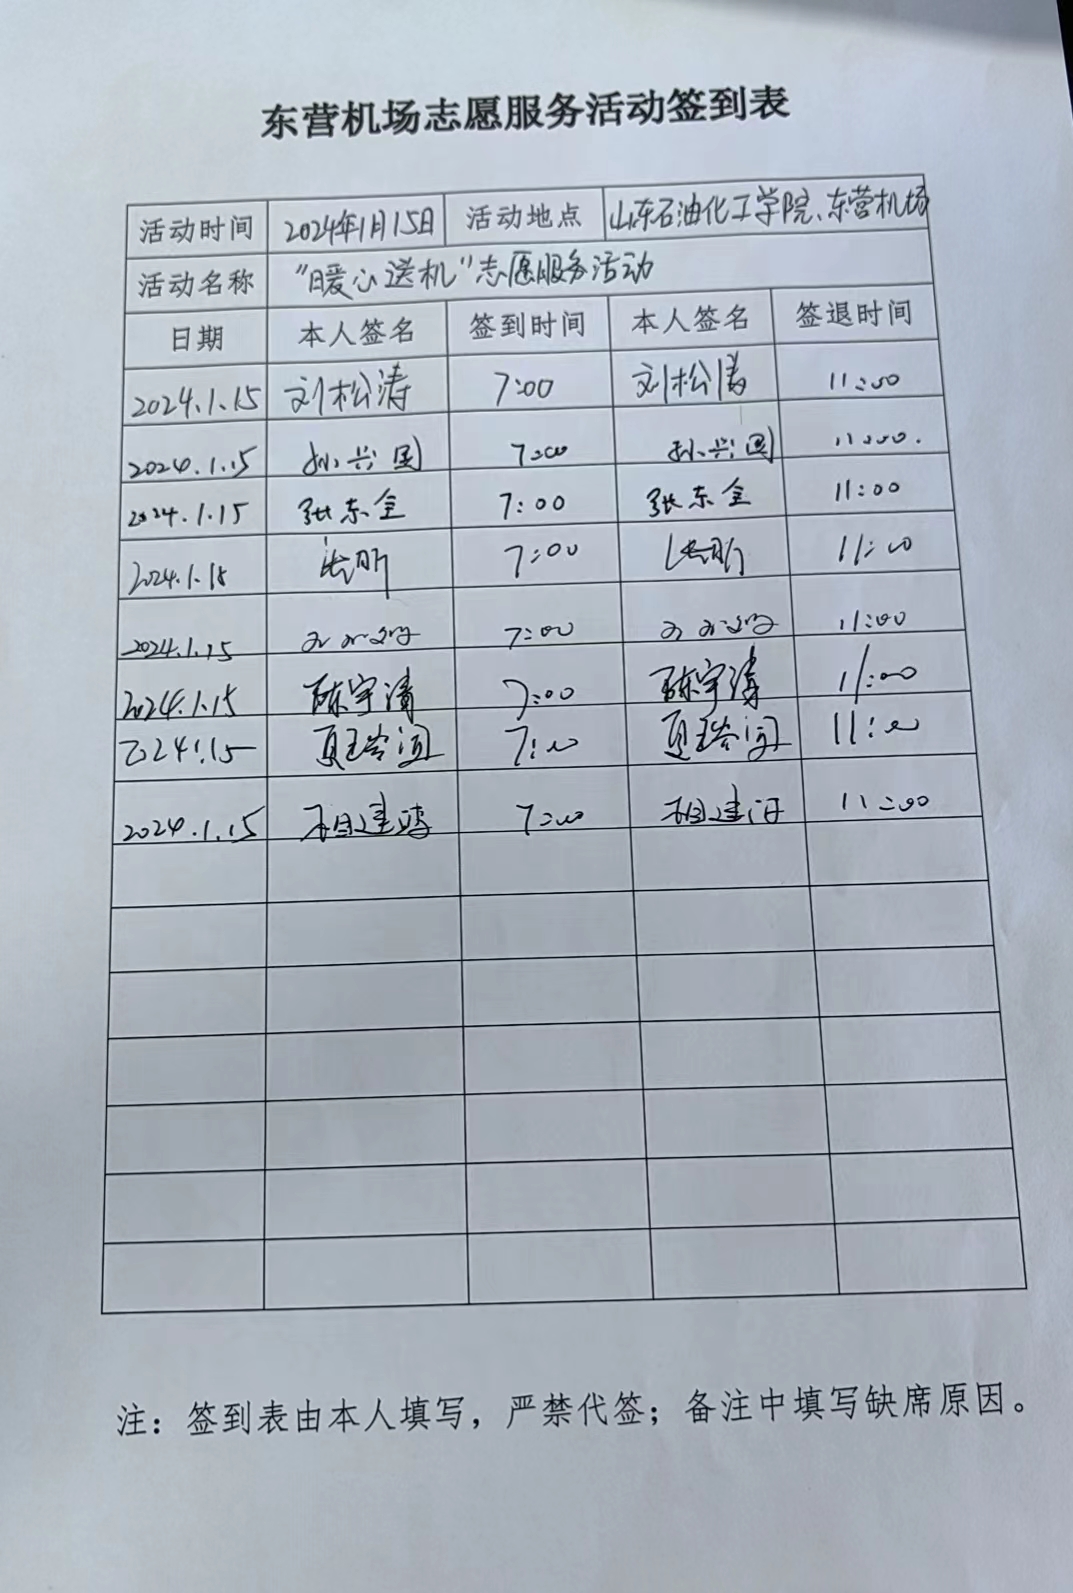 东营机场志愿服务活动签到表
活动时间 2024年1月15日 活动地点 山东石油化工学院、东营机场
活动名称 “暖心送机”志愿服务活动
日期 本人签名 签到时间 本人签名 签退时间
2024.1.15 刘松涛 7:00 刘松涛 11:00
2024.1.15 孙兴国 7:00 孙兴国 11:00.
2024.1.15 张东全 7:00 张东全 11:00
2024.1.15 7:00 11:00
2024.1.15 7:00 11:00
2024.1.15 陈宇清 7:00 陈宇清 11:00
2024.1.15 7:00 11:00
2024.1.15 7:00 11:00
注：签到表由本人填写，严禁代签；备注中填写缺席原因。